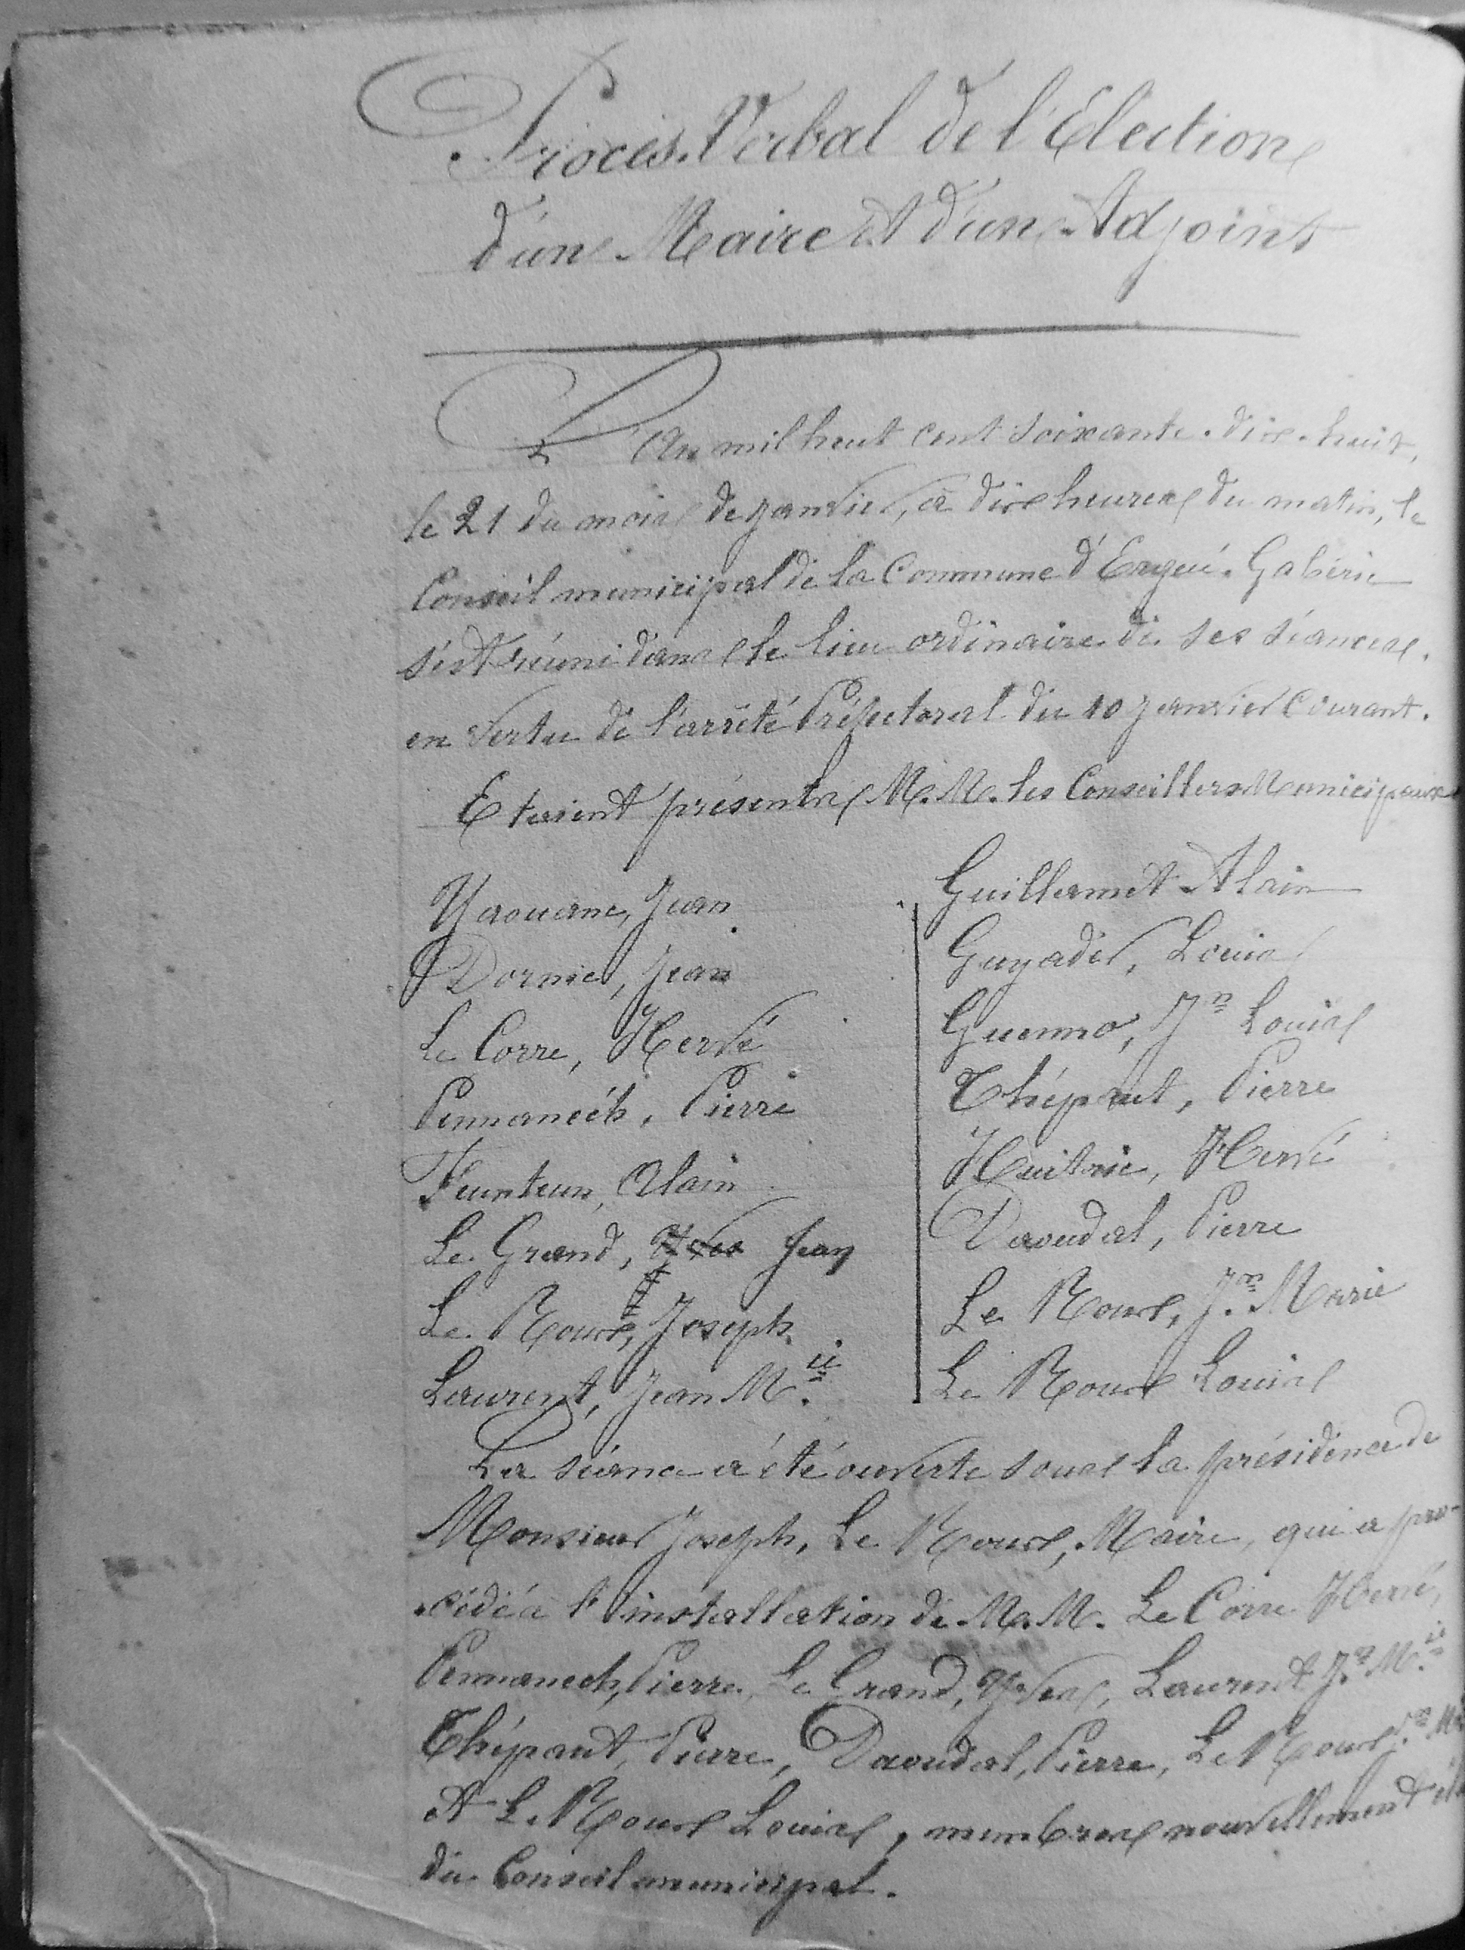 Procès-Verbal de l'Election
d'un Maire et d'un Adjoint
L'An mil huit cent soixante-dix-huit,
le 21 du mois de janvier, à dix heures du matin, le
Conseil municipal de la Commune d'Ergué-Gabéric
s'est réuni dans le lieu ordinaire de ses séances,
en vertu de l'arrêté Préfectoral du 10 janvier courant.
Etaient présents M.M. les Conseillers Municipaux
Yaouanc, Jean
Dornic, Jean
Le Corre, Hervé
Pennanéch, Pierre
Feunteun, Alain
Le Grand, Yves Jean
Le Roux, Joseph
Laurent, Jean M.ie
Guillamet Alain
Guyader, Louis
Guenno, Jn Louis
Thépaut, Pierre
Huitric, Hervé
Daoudal, Pierre
Le Roux, Jn. Marie
Le Roux Louis
La séance a été ouverte sous la présidence de
Monsieur Joseph, Le Roux, Maire, qui a pro-
cédé à l'installation de M.M. Le Corre Hervé,
Pennanech, Pierre, Le Grand, Yves, Laurent Jn M.ie
Thépaut, Pierre, Daoudal, Pierre, Le Roux Jn Mie
et Le Roux Louis, membres nouvellement
du Conseil municipal.